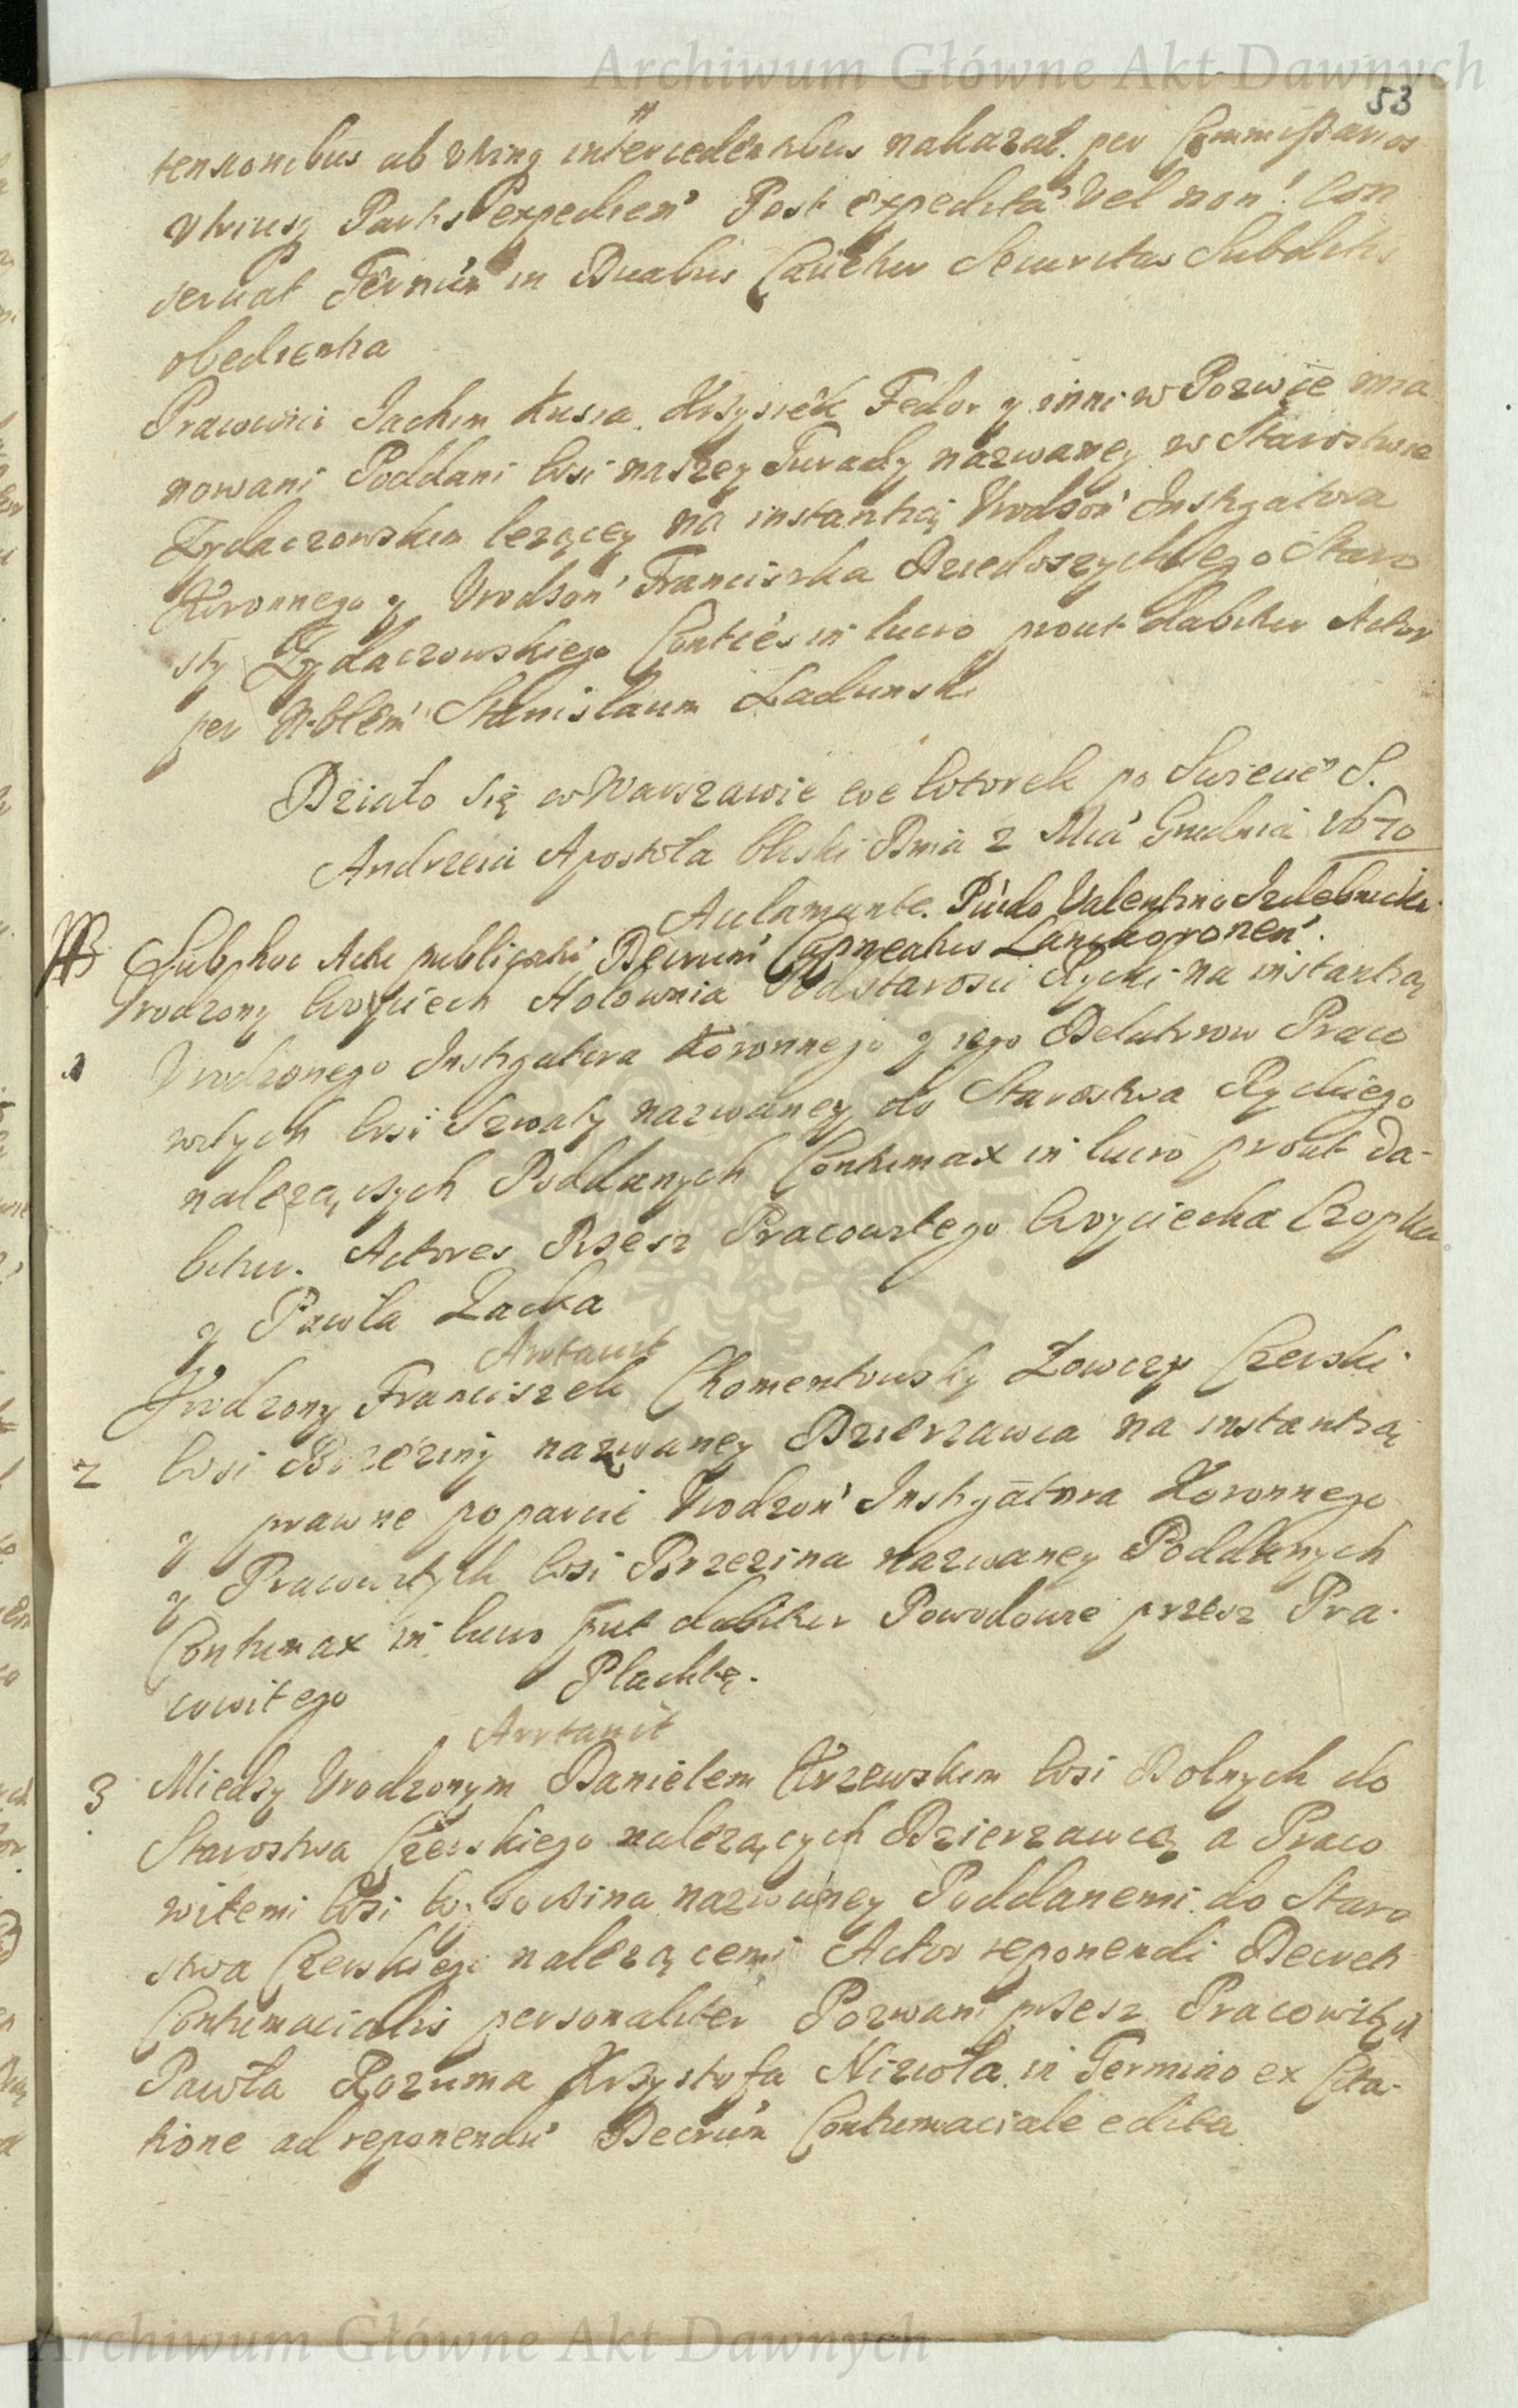 Archiwum Główne Akt Dawnych
53
tensionibus ab vtring intercedentibus nakazał per Commissarios
vtriusq Partis expedien' Post expedita Vel non! Con
seruat Termin in Duabus Securitas Subditis
obedientia
Pracowici Jachim Kusia Krzysiek Fedor y inni w Pozwie mia
nowani Poddani Wsi naszey Turady nazwaney w Starostwie
Zydaczowskim lezącey na instantią Vrodzon' Instigatora
Koronnego y Vrodzon' Franciszka Dzieduszyckiego Staro
sty Zydaczowskiego Conties in lucro prout dabitur Actor
per Nblem' Stanisłaum Ladunski
Działo się w Warszawie we Wtorek po Swiecie S.
Andrzeia Apostoła bliski Dnia 2 Mca Grudnia 1670
Aclamante Puido Valentino
Sub hoc Actu publicati Decreti Lanckoronen'.
Vrodzony Woyciech Hołownia Podstarosci Rycki na instantią
1 Vrodzonego Instigatora Koronnego y iego Delatorow Praco
witych Wsi Szwaty nazwaney do Starostwa Ryckiego
nalezących Poddanych Contumax in lucro prout da-
bitur. Actores Przesz Pracowitego Woyciecha Czopka
y Pawła Zacka
Arrtauit
Vrodzony Franciszek Chomentowsky Łowczy Czerski
2 Wsi Brzeziny nazwaney Dzierzawca na instantią
y prawne poparcie Vrodzon' Instigatora Koronnego
y Pracowitych Wsi Brzezina nazwaney Poddanych
Contumax in lucro put dabitur Powodowie przesz Pra-
cowitego Plachtę.
Arrtauit
3 Miedzy Vrodzonym Danielem Wsi Dolnych do
Starostwa Czerskiego nalezących Dzierzawcą a Praco
witemi Wsi nazwaney Poddanemi do Staro
stwa Czerskiego nalezącemi Actor reponendi Decreti
Contumacialis personaliter Pozwani przesz Pracowitych
Pawła Rozuma Krzysztofa Nizioła in Termino ex Cita-
tione ad reponendu' Decrun Contumaciale edita
Archiwum Główne Akt Dawnych